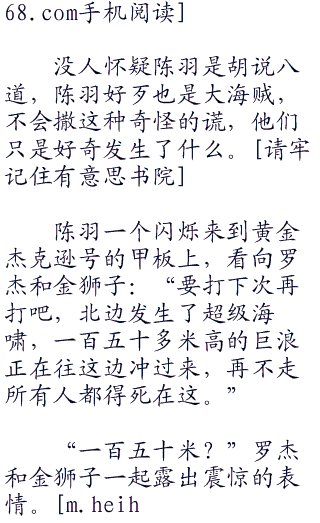 68.com手机阅读]
没人怀疑陈羽是胡说八
道，陈羽好歹也是大海贼，
不会撒这种奇怪的谎，他们
只是好奇发生了什么。[请牢
记住有意思书院]
陈羽一个闪烁来到黄金
杰克逊号的甲板上，看向罗
杰和金狮子：“要打下次再
打吧，北边发生了超级海
啸，一百五十多米高的巨浪
正在往这边冲过来，再不走
所有人都得死在这。”
“一百五十米？”罗杰
和金狮子一起露出震惊的表
情。[m.heih